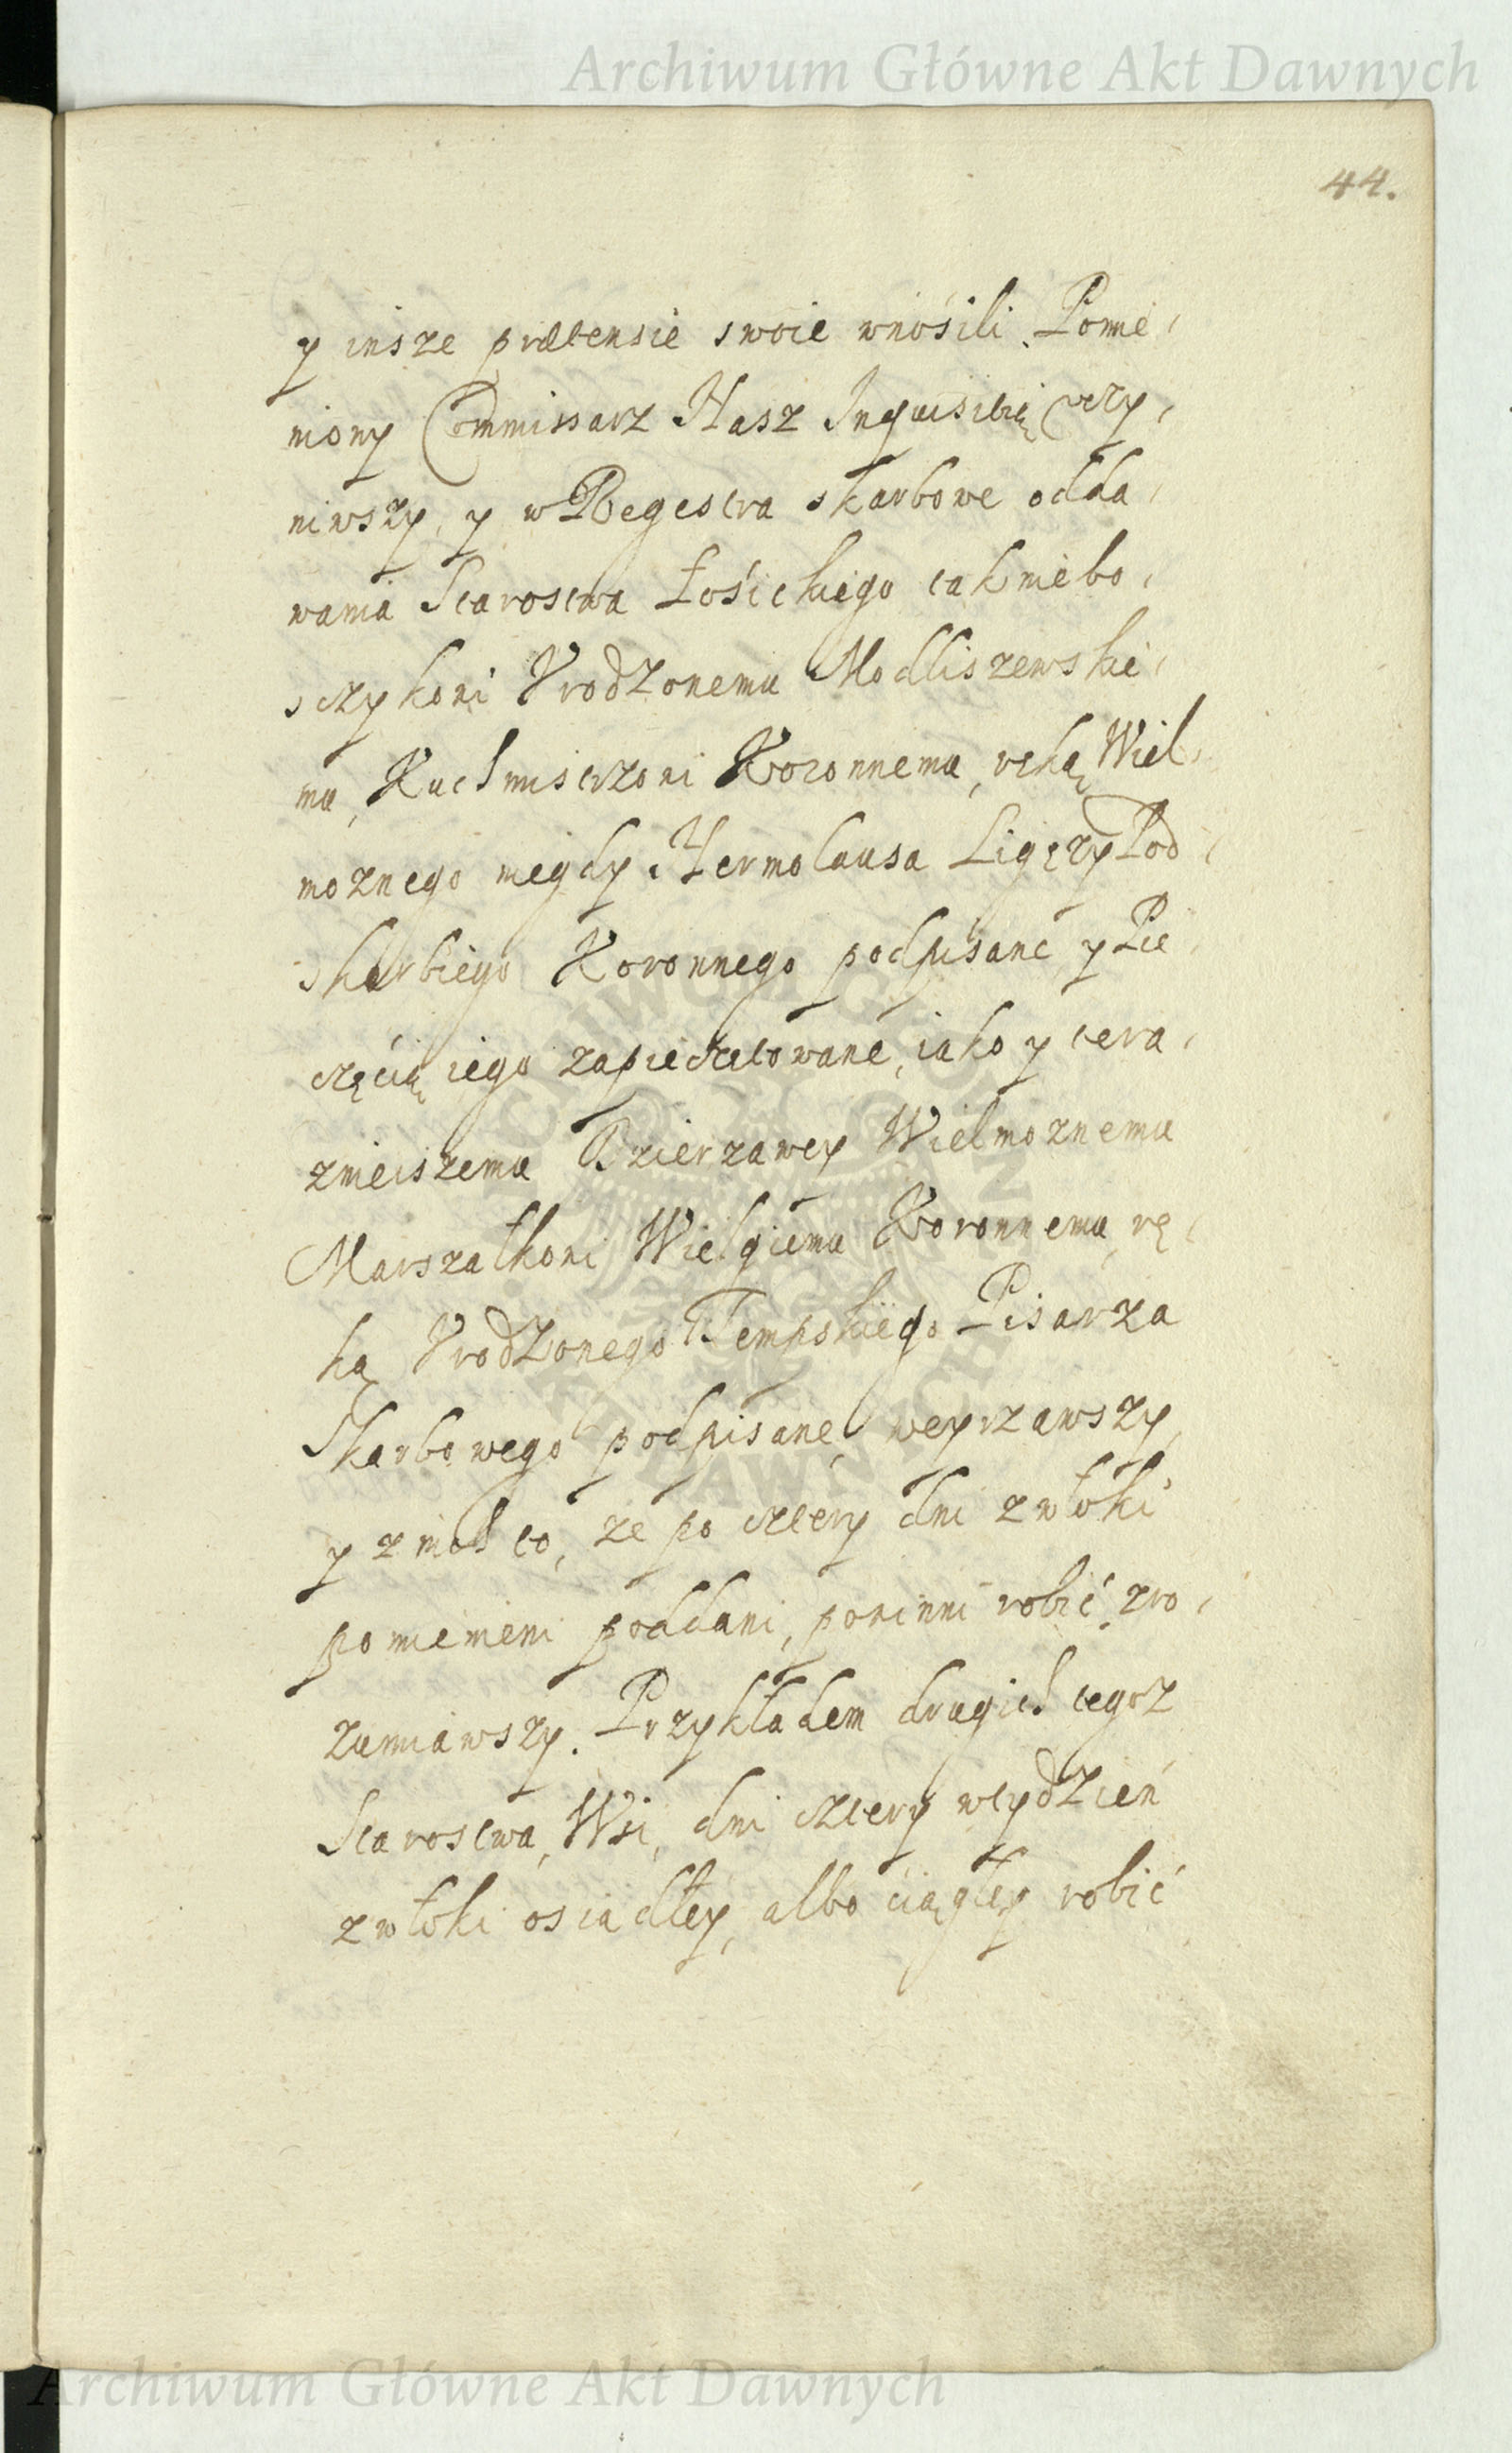 Archiwum Główne Akt Dawnych
44.
y insze prætensie swoie wnosili. Pomie,
niony Commissarz Nasz Inquisitią vczy,
niwszy, y w Regestra skarbowe odda,
wania Starostwa Łosickiego tak niebo,
sczykowi Vrodzonemu Modliszewskie,
mu, Kuchmistrzowi Koronnemu, ręką Wiel,
moznego niegdy Hermolausa Ligęzy Pod,
skarbiego Koronnego podpisane y Pie,
częcią iego zapieczetowane, iako y tera,
znieiszemu Dzierzawcy Wielmoznemu
Marszałkowi Wielgiemu Koronnemu, rę,
ką Vrodzonego Tempskiego Pisarza
Skarbowego podpisane, weyrzawszy,
y z nich to, ze po cztery dni z włoki
pomienieni poddani, powinni robić, zro,
zumiawszy. Przykładem drugich tegoz
Starostwa, Wsi, dni cztery w tydzień
z włoki osiadłey, albo ciągłey robić
Archiwum Główne Akt Dawnych